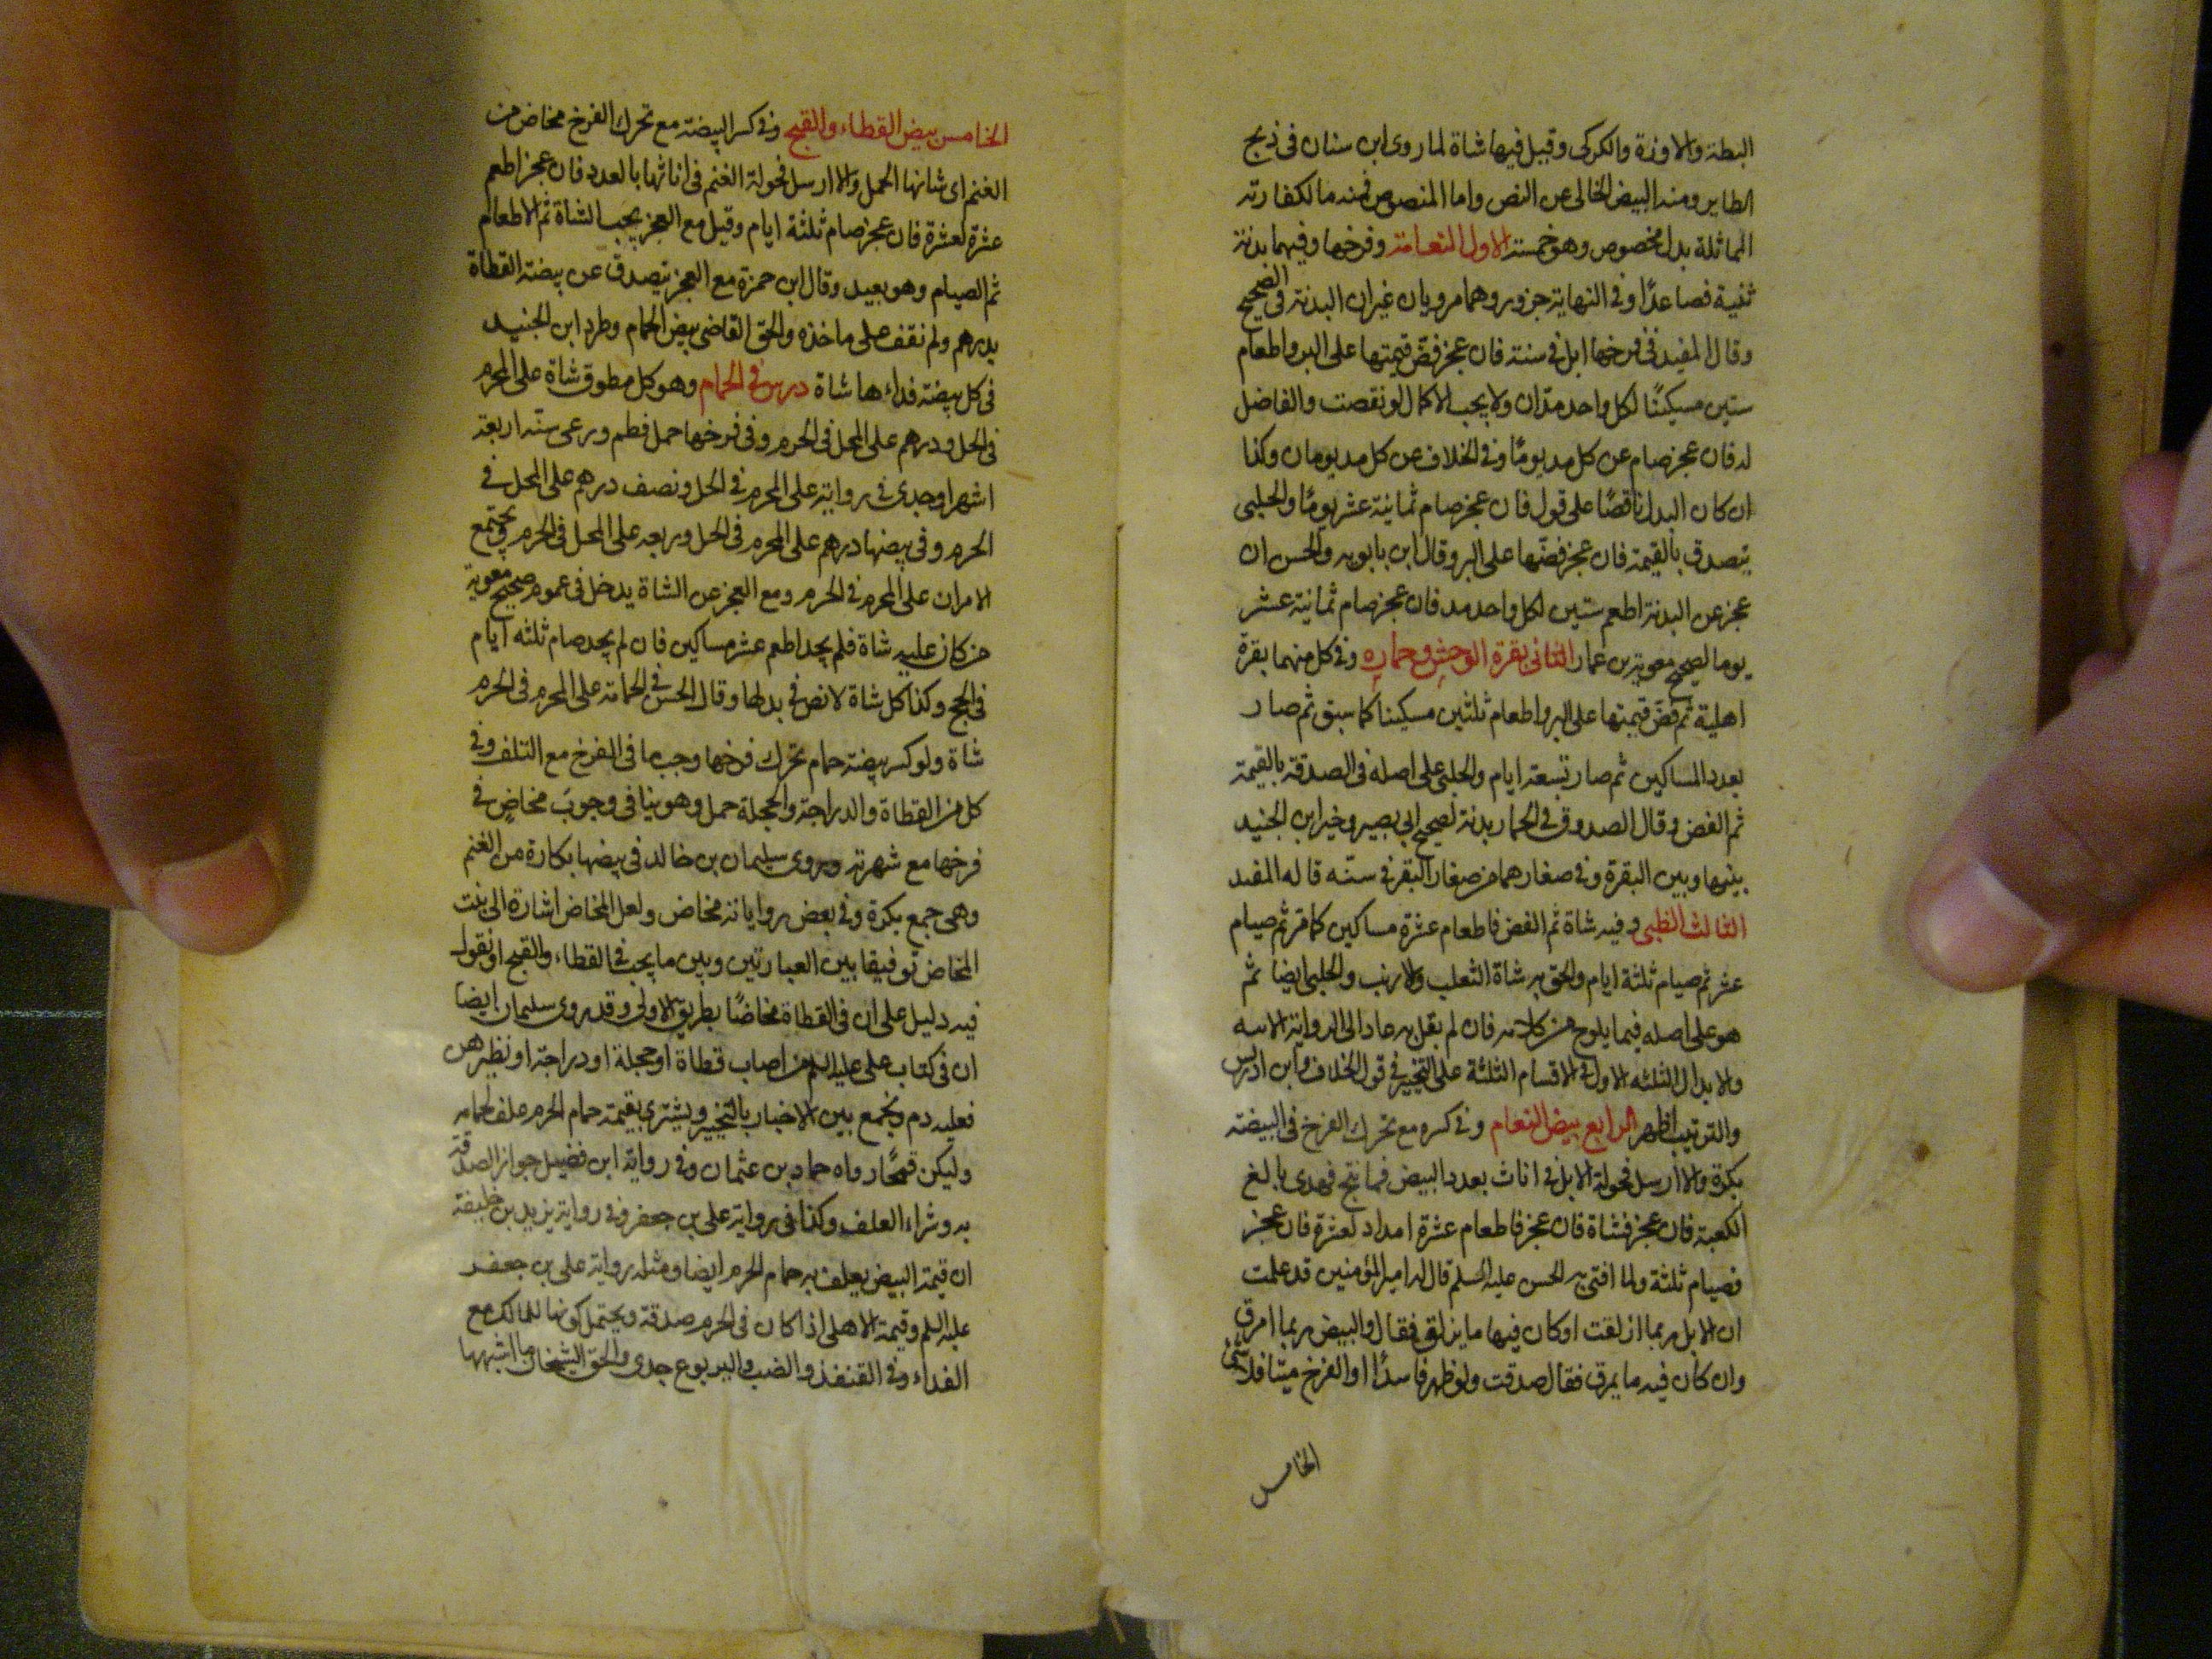 البطة والاوزة والكركى وقيل فيها شاة لما روى ابن سنان فى ذبح
الطاير ومنه البيض الخالى عن النص واما المنصوص فمنه ما لكفارته
المماثلة بدل مخصوص وهو خمسة الاول النعامة وفرخها وفيهما بدنة
ثنية فصاعدًا وفى النهاية جزور وهما مرويان غير ان البدنة فى الصحيح
وقال المفيد فى فرخها ابل فى سنته فان عجز فضّ قيمتها على البر واطعام
ستين مسكينًا لكل واحد مدّان ولا يجب الاكمال لو نقصت والفاضل
له فان عجز صام عن كل مد يومًا وفى الخلاف عن كل مد يومان وكذا
ان كان البدل ناقصًا على قول فان عجز صام ثمانية عشر يومًا والحلبى
يتصدق بالقيمة فان عجز فضّها على البر وقال ابن بابويه والحسن ان
عجز عن البدنة اطعم ستين لكل واحد مد فان عجز صام ثمانية عشر
يوما لصحيح معوية بن عمار الثانى بقرة الوحش وحماره وفى كل منهما بقرة
اهلية ثم فضّ قيمتها على البر واطعام ثلثين مسكينا كما سبق ثم صار
بعدد المساكين ثم صار تسعة ايام والحلبى على اصله فى الصدقة بالقيمة
ثم الفض وقال الصدوق فى الحمار بدنة لصحيح ابى بصير وخير ابن الجنيد
بينها وبين البقرة وفى صغارهما من صغار البقر فى سنّه قاله المفيد
الثالث الظبى وفيه شاة ثم الفض فاطعام عشرة مساكين كما مر ثم صيام
عشر ثم صيام ثلثة ايام والحق به شاة الثعلب والارنب والحلبى ايضا ثم
هو على اصله فيما يلوح من كلامه فان لم يقل به عاد الى الرواية
والابدال الثلثه الاول فى الاقسام الثلثة على التخيير فى قول الخلاف وابن ادريس
والترتيب اظهر الرابع بيض النعام وفى كسره مع تحرك الفرخ فى البيضة
بكرة والا ارسل فحولة الابل فى اناث بعدد البيض فما نتج فهدى بالغ
الكعبة فان عجز فشاة فان عجز فاطعام عشرة امداد لعشرة فان عجز
فصيام ثلثة ولما افتى به الحسن عليه السلم قال له امير المؤمنين قد علمت
ان الابل ربما ازلقت او كان فيها ما يزلق فقال والبيض ربما امرق
وان كان فيه ما يمرق فقال صدقت ولو ظهر فاسدًا او الفرخ ميتا فلا شئ
الخامس
الخامس بيض القطاء والقبج وفى كسر البيضة مع تحرك الفرخ مخاض من
الغنم اى شانها الحمل والا ارسل فحولة الغنم فى اناثها بالعدد فان عجز اطعم
عشرة لعشرة فان عجز صام ثلثة ايام وقيل مع العجز يجب الشاة ثم الاطعام
ثم الصيام وهو بعيد وقال ابن حمزة مع العجز يتصدق عن بيضة القطاة
بدرهم ولم نقف على ماخذه والحق القاضى بيض الحمام وطرد ابن الجنيد
فى كل بيضة فداءها شاة درس فى الحمام وهو كل مطوق شاة على المحرم
فى الحل ودرهم على المحل فى الحرم وفى فرخها حمل فطم ورعى سنّه اربعة
اشهر او جدى فى رواية على المحرم فى الحل ونصف درهم على المحل فى
الحرم وفى بيضها درهم على المحرم فى الحل وربعه على المحل فى الحرم ويجتمع
الامران على المحرم فى الحرم ومع العجز عن الشاة يدخل فى عموم صحيح معوية
من كان عليه شاة فلم يجد اطعم عشر مساكين فان لم يجد صام ثلثه ايام
فى الحج وكذا كل شاة لا نص فى بدلها وقال الحسن فى الحمامة على المحرم فى الحرم
شاة ولو كسر بيضة حمام تحرك فرخها وجب ما فى الفرخ مع التلف وفى
كل من القطاة والدراجة والحجلة حمل وهو ينافى وجوب مخاض فى
فرخها مع شهرته وروى سليمان بن خالد فى بيضها بكارة من الغنم
وهى جمع بكرة وفى بعض رواياته مخاض ولعل المخاض اشارة الى بنت
المخاض توفيقا بين العبارتين وبين ما يجب فى القطاء والقبج او نقول
فيه دليل على ان فى القطاة مخاضًا بطريق الاولى وقد روى سليمان ايضا
ان فى كتاب على عليه السلم من اصاب قطاة او حجلة او دراجة او نظيرهن
فعليه دم ويجمع بين الاخبار بالتخيير ويشترى بقيمة حمام الحرم علف لحمامه
وليكن قمحًا رواه حماد بن عثمان وفى رواية ابن فضيل جواز الصدقة
به وشراء العلف وكذا فى رواية على بن جعفر وفى رواية يزيد بن خليفة
ان قيمة البيض يعلف به حمام الحرم ايضا ومثله رواية على بن جعفر
عليه السلم وقيمة الاهلى اذا كان فى الحرم صدقة ويحتمل كونها للمالك مع
الفداء وفى القنفذ والضب واليربوع جدى والحق الشيخان ما اشبهها